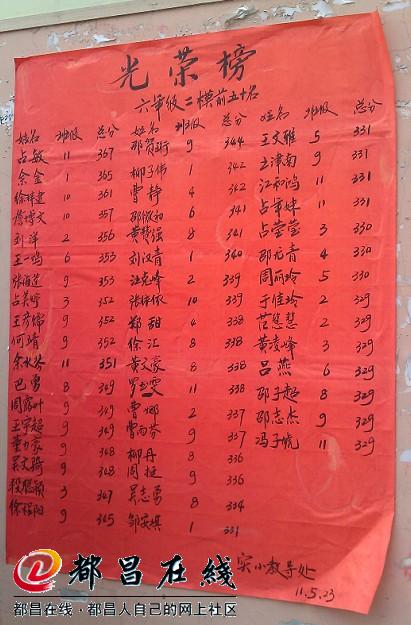 光荣榜
六年级二模前五十名
姓名 班级 总分 姓名 班级 总分 姓名 班级 总分
占敏 11 367
余金 1 365
徐梓建 10 361
詹博文 10 361
刘洋 2 356
王一鸣 6 353
张海莲 9 353
占美婷 3 352
王彦烯 9 352
何靖 9 352
余水芬 11 351
巴勇 8 349
周露叶 9 349
王宇超 9 349
董力豪 9 348
吴文琦 9 348
段聪颖 3 347
徐绍阳 9 345
邵贺衍 9 344
柳子伟 1 342
曹静 4 342
邵俊和 6 341
黄赞强 8 341
刘汉青 1 340
汪克峰 2 339
张锦依 10 339
郑甜 4 338
徐汇 8 338
黄文豪 8 338
罗雪雯 11 338
曹娜 2 337
曹雨芬 9 337
柳丹 8 336
周挺 9 336
吴志勇 8 334
邹安琪 1 331
王文雅 5 331
王津南 9 331
江和鸿 11 331
占幸婕 11 331
占莹莹 3 330
邵尤青 4 330
周丽玲 5 330
于佳玲 2 329
范慧慧 2 329
黄凌峰 3 329
吕燕 6 329
邵子超 8 329
邵志杰 9 329
冯子恍 11 329
实小教导处
11.5.23
都昌在线
都昌在线·都昌人自己的网上社区